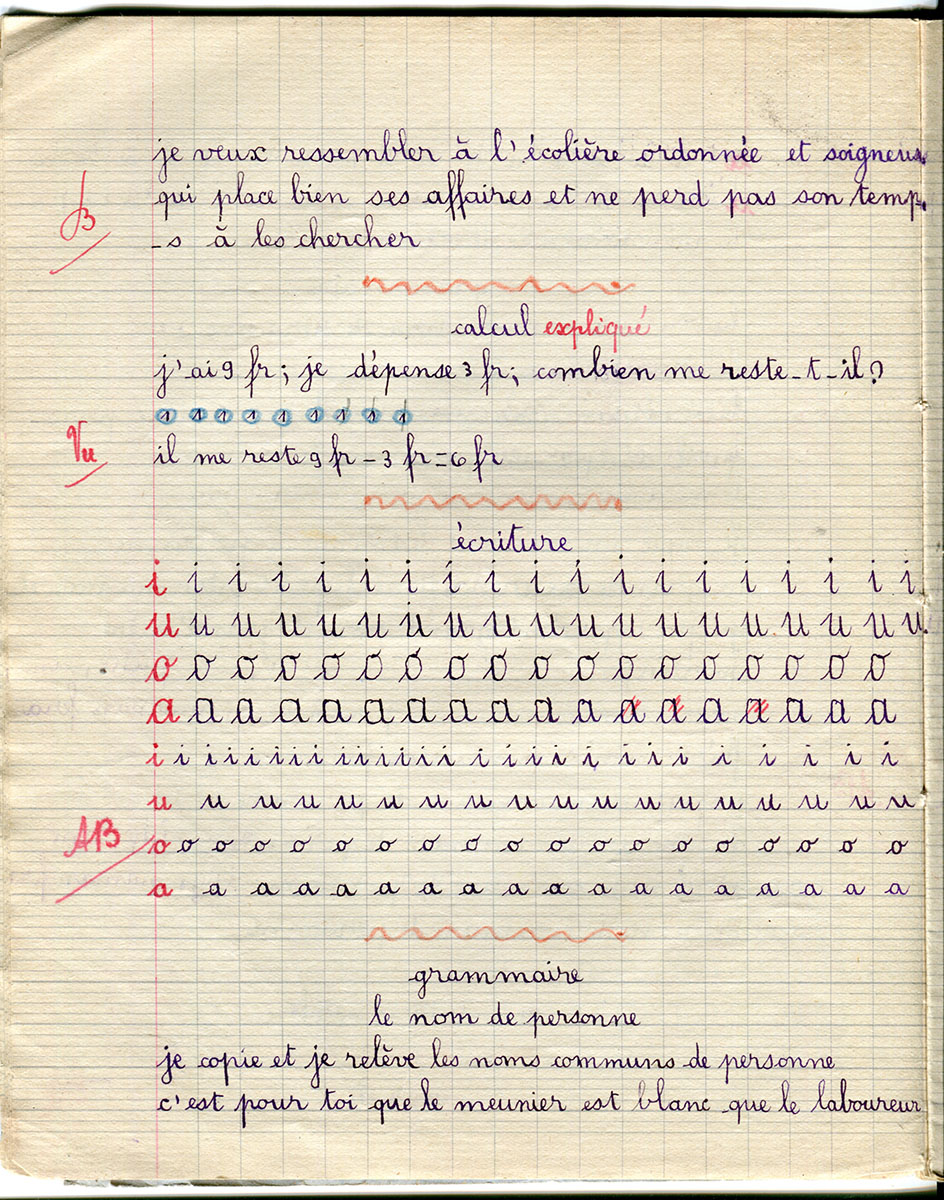 je veux ressembler à l'écolière ordonnée et soigneus
qui place bien ses affaires et ne perd pas son temp
B
-s à les chercher
calcul expliqué
j'ai 9 fr; je dépense 3 fr; combien me reste-t-il?
1 1 1 1 1 1 1 1 1
Vu
il me reste 9 fr - 3 fr = 6 fr
écriture
i i i i i i i i i i i i i i i i i i i
u u u u u u u u u u u u u u u u u u u
o o o o o o o o o o o o o o o o o o
a a a a a a a a a a a a a a a a a a
i i i i i i i i i i i i i i i i i i i i i i i i i i i
u u u u u u u u u u u u u u u u u u
AB
o o o o o o o o o o o o o o o o o o o
a a a a a a a a a a a a a a a a a a
grammaire
le nom de personne
je copie et je relève les noms communs de personne
c'est pour toi que le meunier est blanc que le laboureur